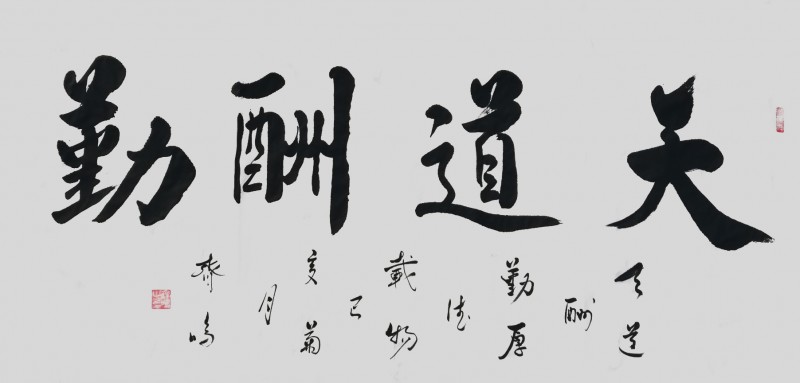 天道酬勤
天道
酬
勤厚
德
載物
己
亥菊
月
齊鳴